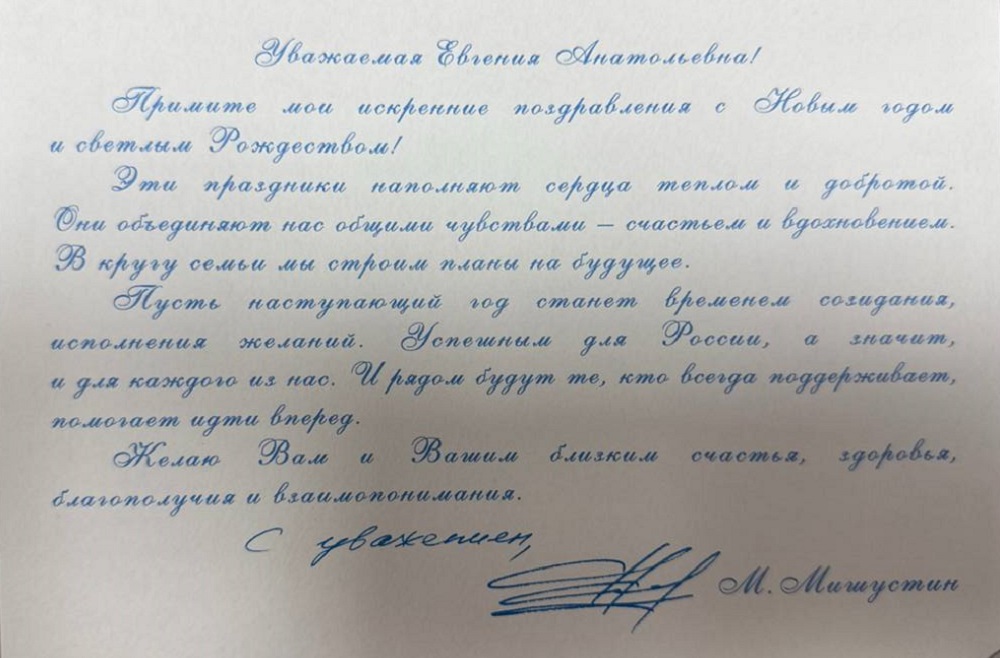 Уважаемая Евгения Анатольевна!
Примите мои искренние поздравления с Новым годом
и светлым Рождеством!
Эти праздники наполняют сердца теплом и добротой.
Они объединяют нас общими чувствами – счастьем и вдохновением.
В кругу семьи мы строим планы на будущее.
Пусть наступающий год станет временем созидания,
исполнения желаний. Успешным для России, а значит,
и для каждого из нас. И рядом будут те, кто всегда поддерживает,
помогает идти вперед.
Желаю Вам и Вашим близким счастья, здоровья,
благополучия и взаимопонимания.
С уважением,
М. Мишустин